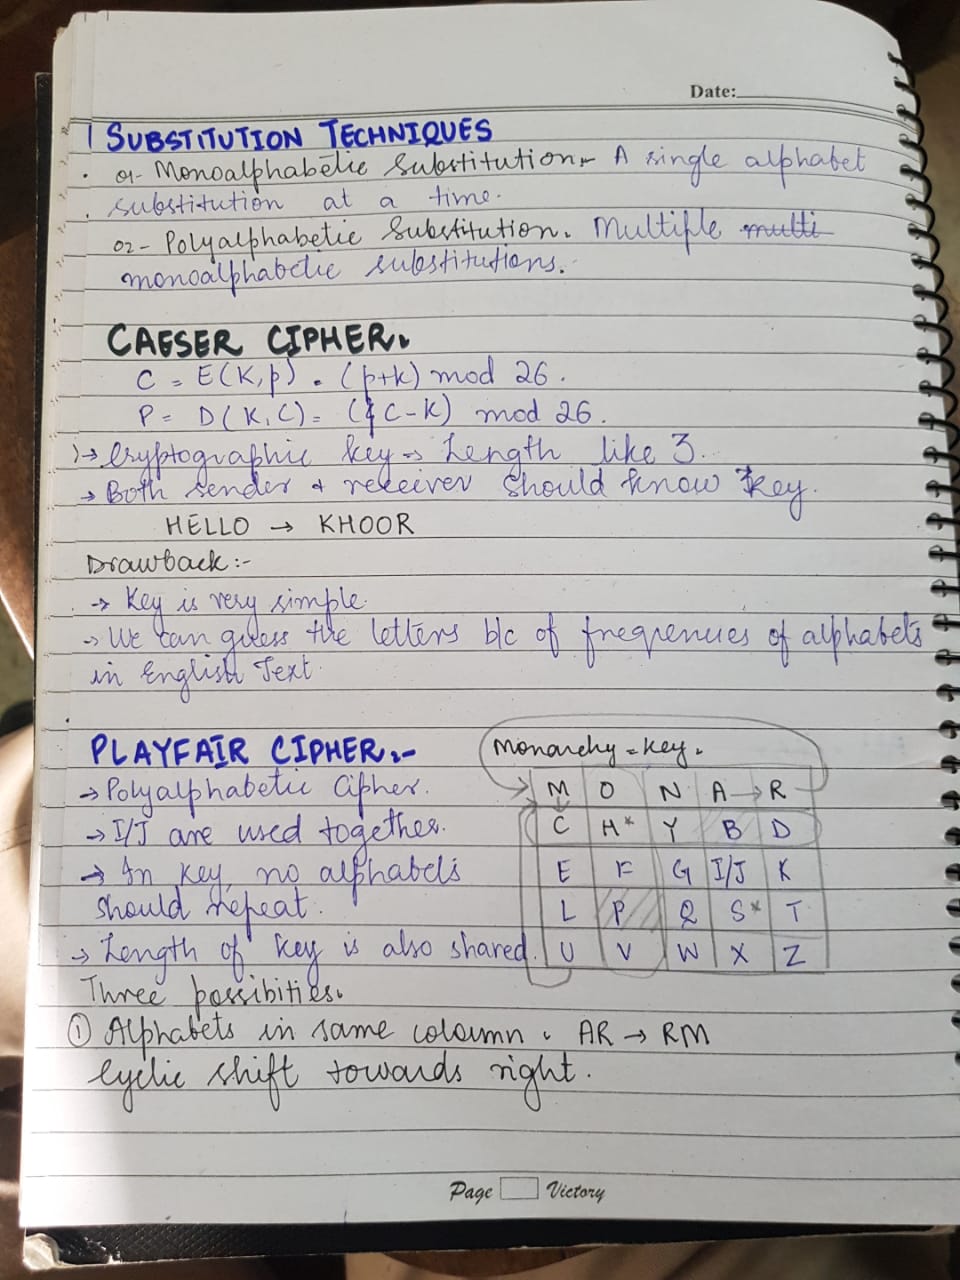 Date:
1 SUBSTITUTION TECHNIQUES
01- Monoalphabetic Substitution:- A single alphabet
substitution at a time.
02- Polyalphabetic Substitution. Multiple multi
monoalphabetic substitutions.
CAESER CIPHER.
C = E(K,p) = (p+k) mod 26.
P = D(K,C) = (C-K) mod 26.
→ Cryptographic key → Length like 3.
→ Both sender & receiver should know key.
HELLO → KHOOR
Drawback:-
→ Key is very simple.
→ We can guess the letters b/c of freqrencies of alphabets
in English Text.
PLAYFAIR CIPHER:-
Monarchy = key.
→ Polyalphabetic Cipher.
→ I/J are used together.
→ In key, no alphabets
should repeat.
→ Length of key is also shared.
M O N A → R
C H* Y B D
E F G I/J K
L P Q S* T
U V W X Z
Three possibities.
① Alphabets in same coloumn. AR → RM
Cyclic shift towards right.
Page Victory